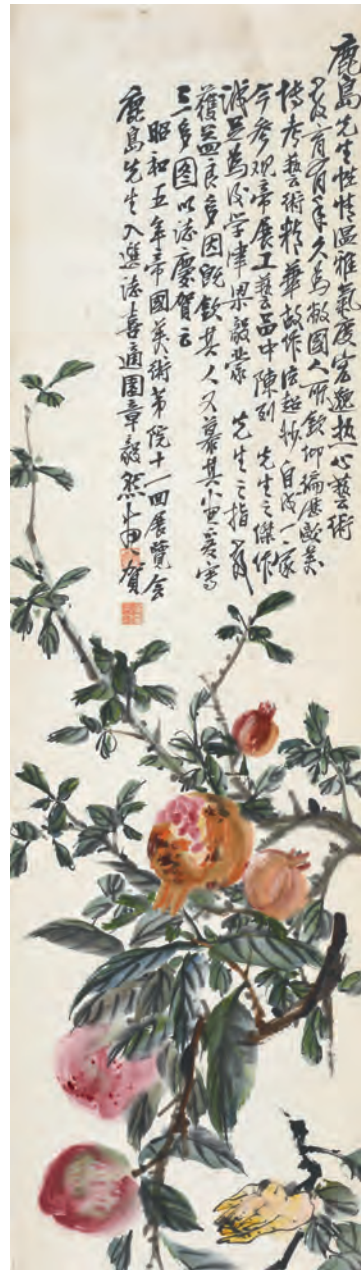 鹿島先生性情溫雅氣度宏遠熱心藝術
教育有年久為敝國人所欽仰徧歷歐美
博考藝術精華故作法超妙自成一家
今參观帝展工藝品中陳列 先生之傑作
誠足為後学津梁毅 蒙 先生之指教
獲益良多因既欽其人又慕其小
三多图以誌慶賀云
昭和五年帝國美術第院十一回展覽會
鹿島先生入選誌喜適園章毅然 賀